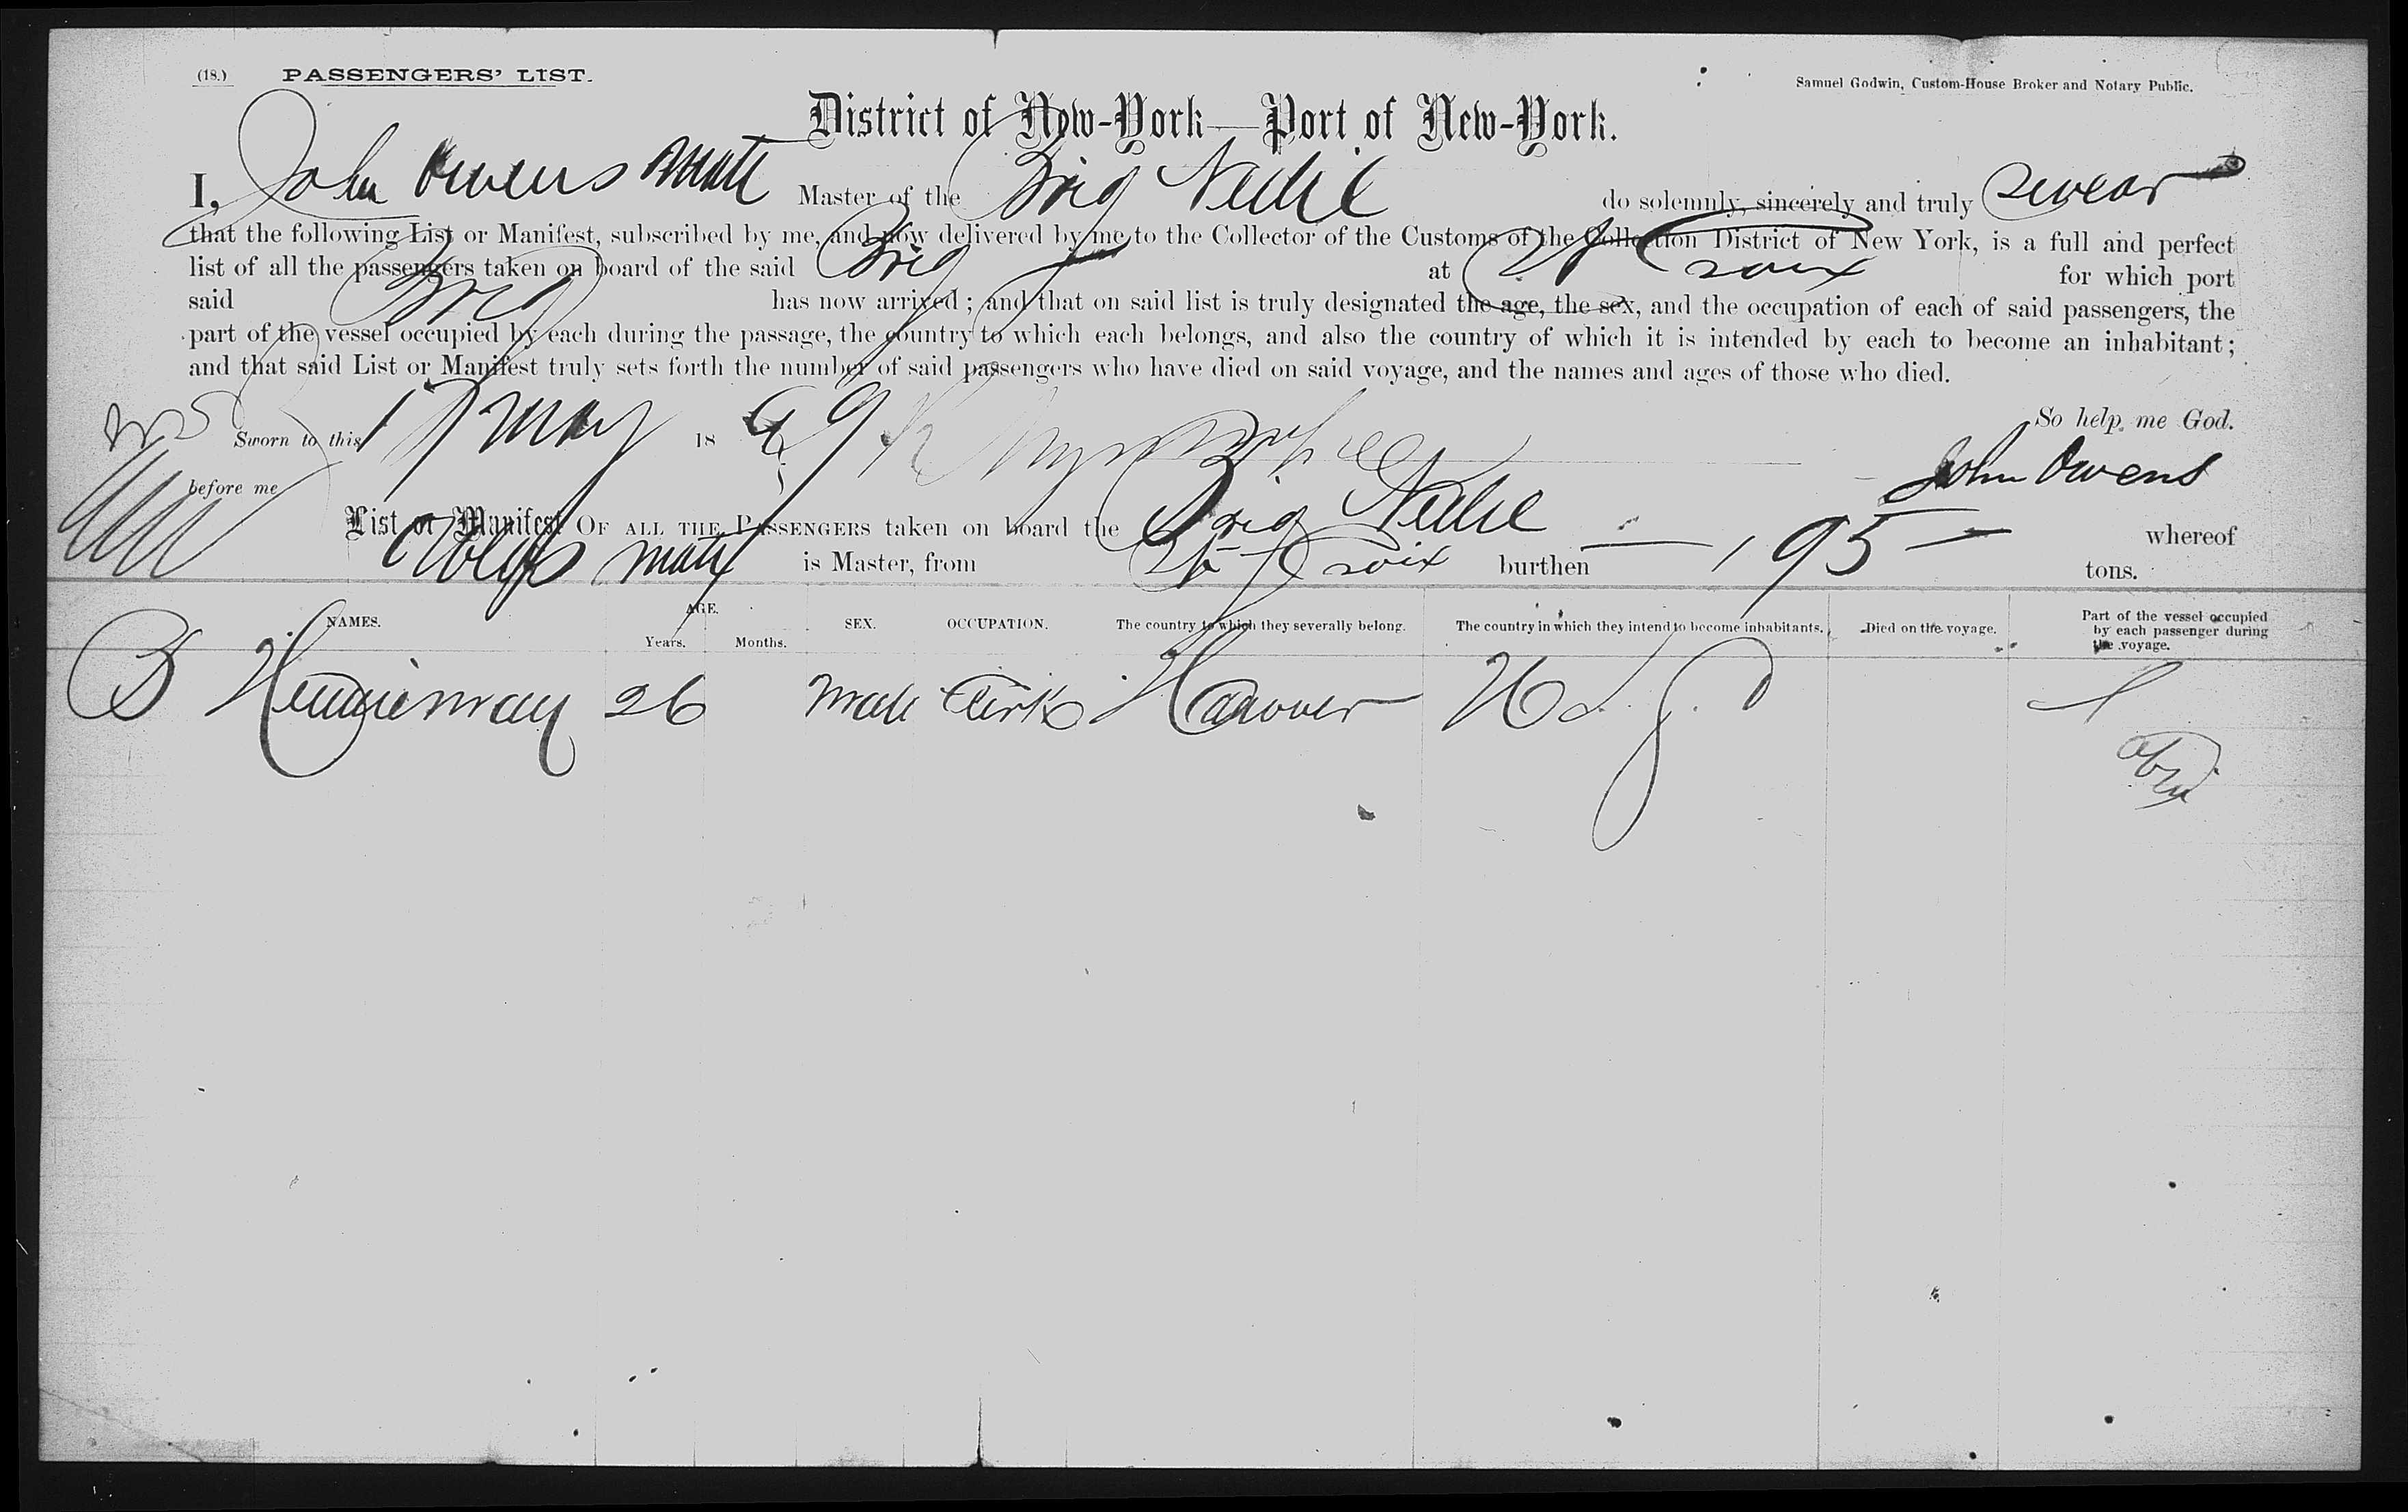 (18.) PASSENGERS' LIST.
Samuel Godwin, Custom-House Broker and Notary Public.
District of New-York—Port of New-York.
I, John Owens Mate Master of the Brig Nellie do solemnly, sincerely and truly swear
that the following List or Manifest, subscribed by me, and now delivered by me to the Collector of the Customs of the Collection District of New York, is a full and perfect
list of all the passengers taken on board of the said Brig at St Croix for which port
said Brig has now arrived; and that on said list is truly designated the age, the sex, and the occupation of each of said passengers, the
part of the vessel occupied by each during the passage, the country to which each belongs, and also the country of which it is intended by each to become an inhabitant;
and that said List or Manifest truly sets forth the number of said passengers who have died on said voyage, and the names and ages of those who died.
So help me God.
Sworn to this 17 May 1869
John Owens
before me
List or Manifest OF ALL THE PASSENGERS taken on board the Brig Nellie whereof
Owens Mate is Master, from St Croix burthen 195 tons.
NAMES. AGE. Years. Months. SEX. OCCUPATION. The country to which they severally belong. The country in which they intend to become inhabitants. Died on the voyage. Part of the vessel occupied by each passenger during the voyage.
B 26 Male Clerk Hanover U.S.